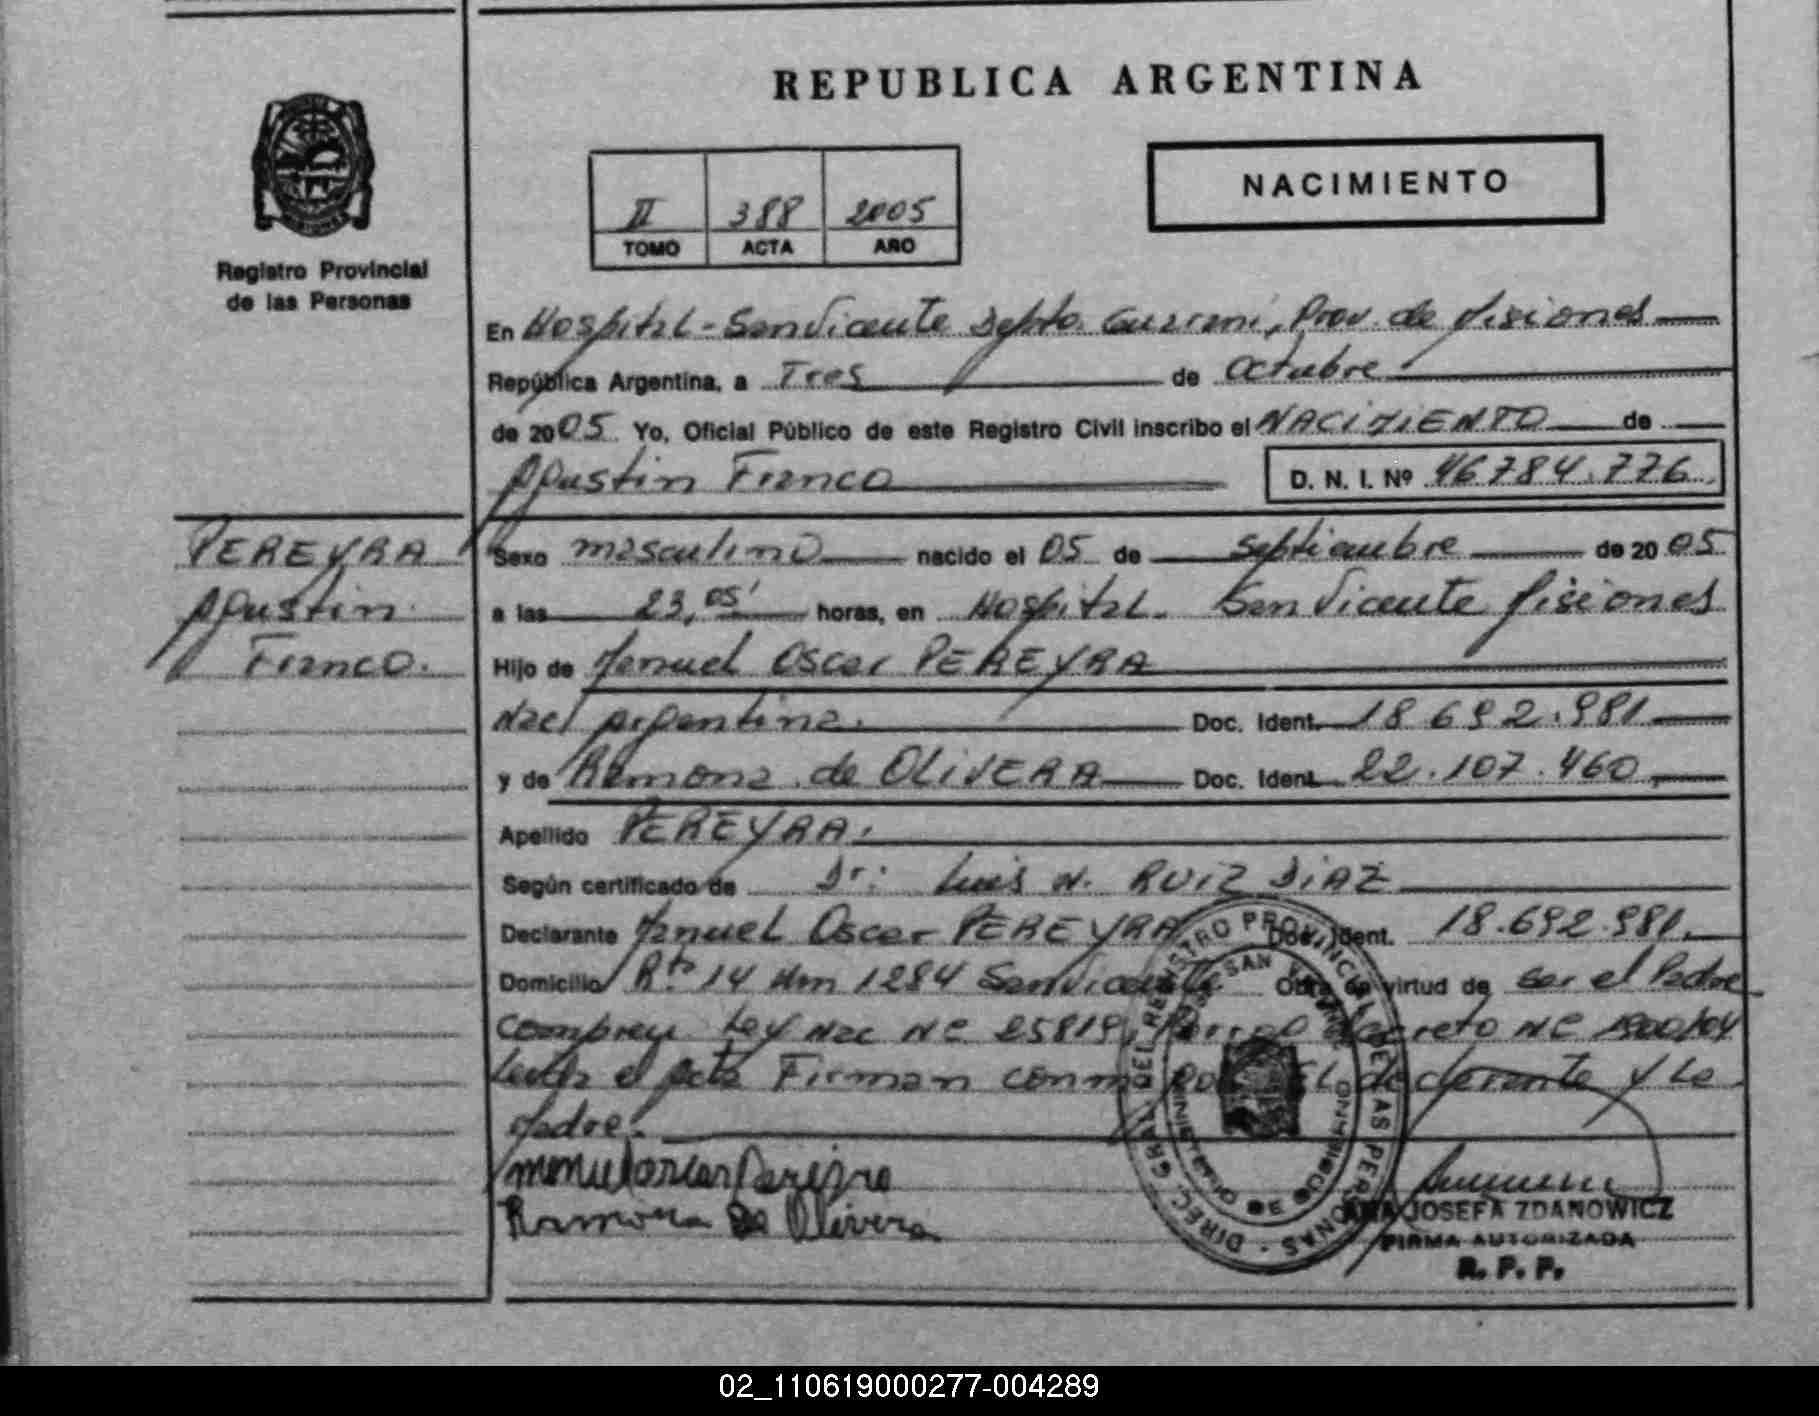 REPUBLICA ARGENTINA
NACIMIENTO
II 388 2005
TOMO ACTA AÑO
Registro Provincial
de las Personas
En Hospital - San Vicente Depto. Guaraní, Prov. de Misiones
República Argentina, a Tres de Octubre
de 2005 Yo, Oficial Público de este Registro Civil inscribo el NACIMIENTO de
Agustin Franco D. N. I. Nº 46784.776
PEREYRA
Agustin
Franco.
Sexo masculino nacido el 05 de Septiembre de 2005
a las 23,05' horas, en Hospital. San Vicente Misiones
Hijo de Manuel Oscar PEREYRA
Nac/ Argentina. Doc. Ident. 18 692.981
y de Ramona de OLIVERA Doc. Ident. 22.107.460
Apellido PEREYRA.
Según certificado de Dr: Luis N. RUIZ DIAZ
Declarante Manuel Oscar PEREYRA Doc. Ident. 18.692.981.
Domicilio Rta 14 Km 1284 San Vicente Obra en virtud de ser el Padre
Ley Nac Nº 25819, Decreto Nº 1900/04
el Acta Firman conmigo El declarante y la
Madre.
manuel oscar Pereyra
Ramona De Olivera
DIREC. GRAL DEL REGISTRO PROVINCIAL DE LAS PERSONAS
SAN VICENTE
ANA JOSEFA ZDANOWICZ
FIRMA AUTORIZADA
R. P. P.
02_110619000277-004289